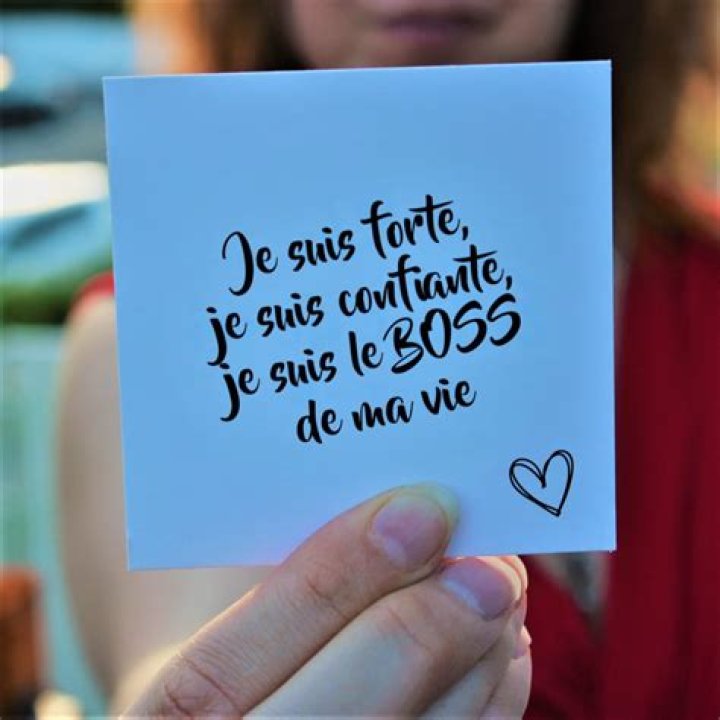 Je suis forte,
je suis confiante,
je suis le BOSS
de ma vie